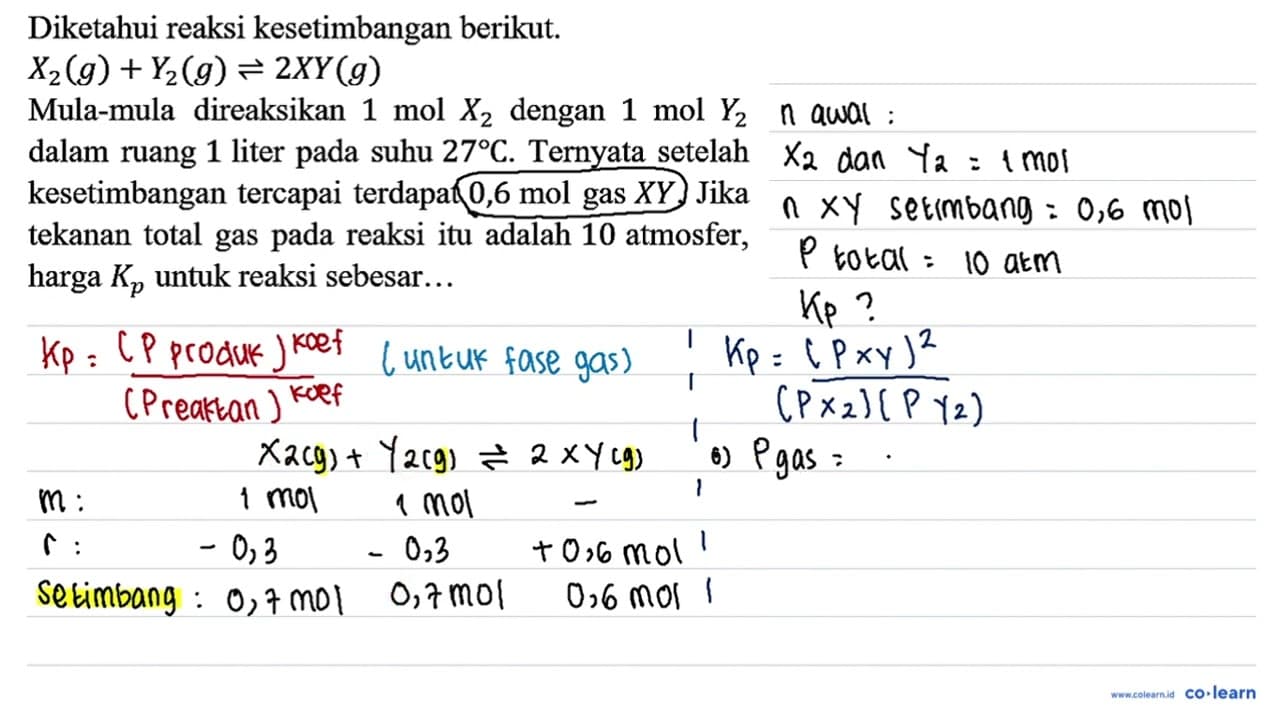 Diketahui reaksi kesetimbangan berikut.
X₂(g) + Y₂(g) ⇌ 2XY(g)
Mula-mula direaksikan 1 mol X₂ dengan 1 mol Y₂
dalam ruang 1 liter pada suhu 27°C. Ternyata setelah
kesetimbangan tercapai terdapat 0,6 mol gas XY. Jika
tekanan total gas pada reaksi itu adalah 10 atmosfer,
harga Kp untuk reaksi sebesar...
n awal :
X2 dan Y2 = 1 mol
n XY setimbang = 0,6 mol
P total = 10 atm
Kp ?
Kp = (P produk)^koef (untuk fase gas)
(P reaktan)^koef
X2(g) + Y2(g) ⇌ 2 XY(g)
m : 1 mol 1 mol -
r : - 0,3 - 0,3 + 0,6 mol
Setimbang : 0,7 mol 0,7 mol 0,6 mol
Kp = (P XY)²
(P X2) (P Y2)
6) P gas = .
www.colearn.id co·learn